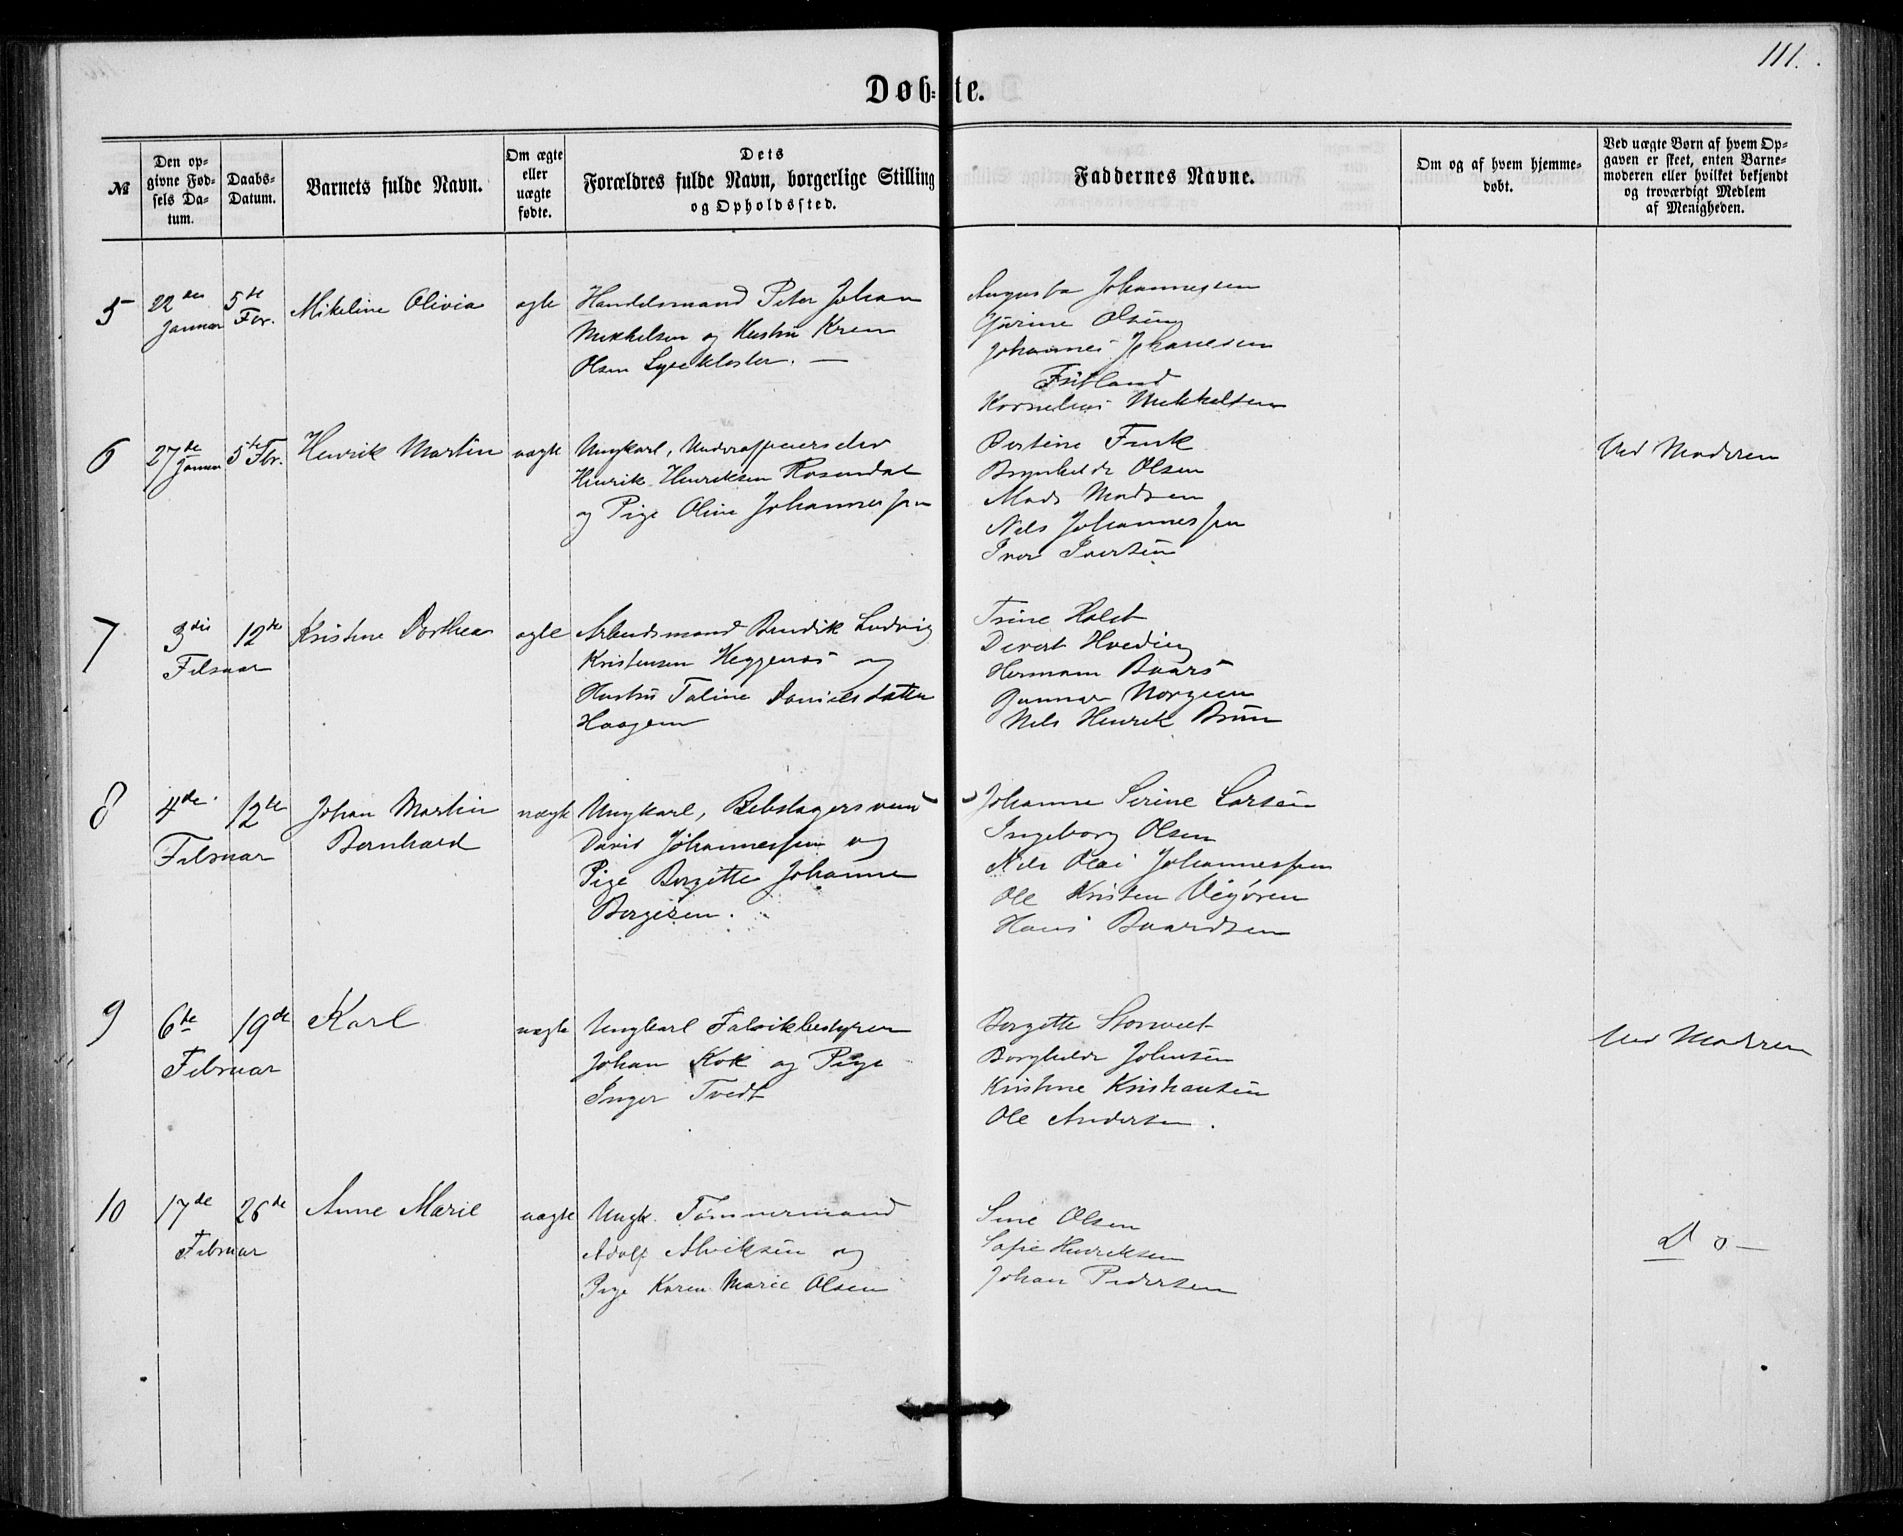 111.
Døb- te.
№
Den opgivne Fødsels Datum.
Daabs-Datum.
Barnets fulde Navn.
Om ægte eller uægte fødte.
Dets
Forældres fulde Navn, borgerlige Stilling
og Opholdssted.
Faddernes Navne.
Om og af hvem hjemmedøbt.
Ved uægte Børn af hvem Opgaven er skeet, enten Barnemoderen eller hvilket bekjendt og troværdigt Medlem af Menigheden.
5
22den Januar
5te Febr.
Mikeline Olivia
ægte
Handelsmand Peter Johan
Mikkelsen og Hustru
Olsen Lysekloster. —
Augusta Johannesen
Olsen
Johannes Johanesen
Kornelius Mikkelsen
6
27de Januar
5te Febr.
Henrik Martin
uægte
Ungkarl,
Henrik Henriksen Rosendal
og Pige Oline Johannessen
Bertine Funk
Brynhilde Olsen
Mads Madsen
Nils Johannessen
Iver Iversen
Ved Modren
7
3die
Februar
12te
Kristine Dorthea
ægte
Arbeidsmand Bendik Ludvig
Kristensen og
Hustru Taline Danielsdatter
Haagen
Trine Holst
Hveding
Hermann Baars
Gunnar
Nils Henrik Brun
8
4de
Februar
12te
Johan Martin
Bernhard
uægte
Ungkarl, Rebslagersvend
David Johannessen og
Pige Bergitte Johanne
Børgesen.
Johanne Serine Larsen
Ingeborg Olsen
Nils Olai Johannessen
Ole Kristen
Hans Baardsen
9
6te
Februar
19de
Karl
uægte
Ungkarl Fabrikbestyrer
Johan Kok og Pige
Inger Tvedt
Bergitte Storvedt
Borghilde Johnsen
Kristine Kristiansen
Ole Andersen.
Ved Modren
10
17de
Februar
26de
Anne Marie
uægte
Ungk. Tømmermand
Adolf Alviksen og
Pige Karen Marie Olsen
Sine Olsen
Sofie Henriksen
Johan Pedersen
Do —